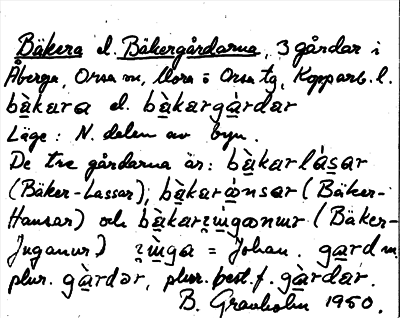 Bäkera el. Bäkergårdarna, 3 gårdar i
Åberga, Orsa sn, Mora o Orsa tg, Kopparb. l.
bàkara el. bàkargàrdar
Läge: N. delen av byn.
De tre gårdarna är: bàkarlásar
(Bäker-Lassar), bàkarànsar (Bäker-
Hansar) och bàkar (Bäker-
Juganur) = Johan. gard m.
plur. gàrdar, plur. best. f. gàrdar.
B. Granholm 1950.